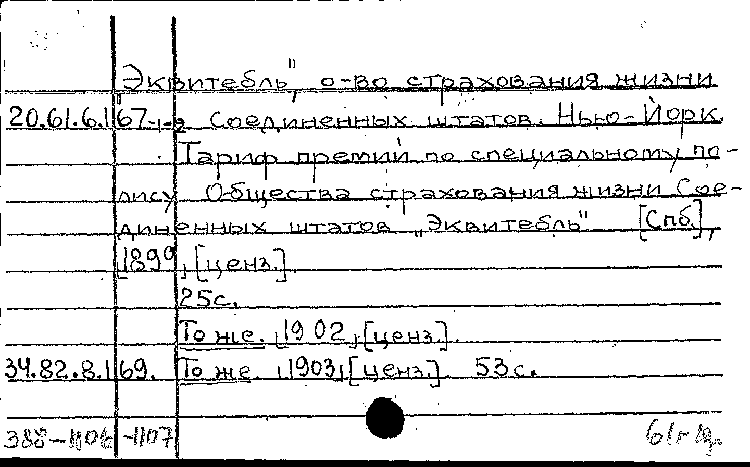 "Эквитебль", о-во страхования жизни
20.61.6.1167-1-2 Соединенных штатов. Нью-Йорк.
Тариф премий по специальному по-
лису Общества страхования жизни Сое-
диненных штатов "Эквитебль" [Спб.],
1899, [ценз.].
25с.
То же. 1902, [ценз.].
34.82.8.1169. То же. 1903, [ценз.]. 53с.
388-1106-1107